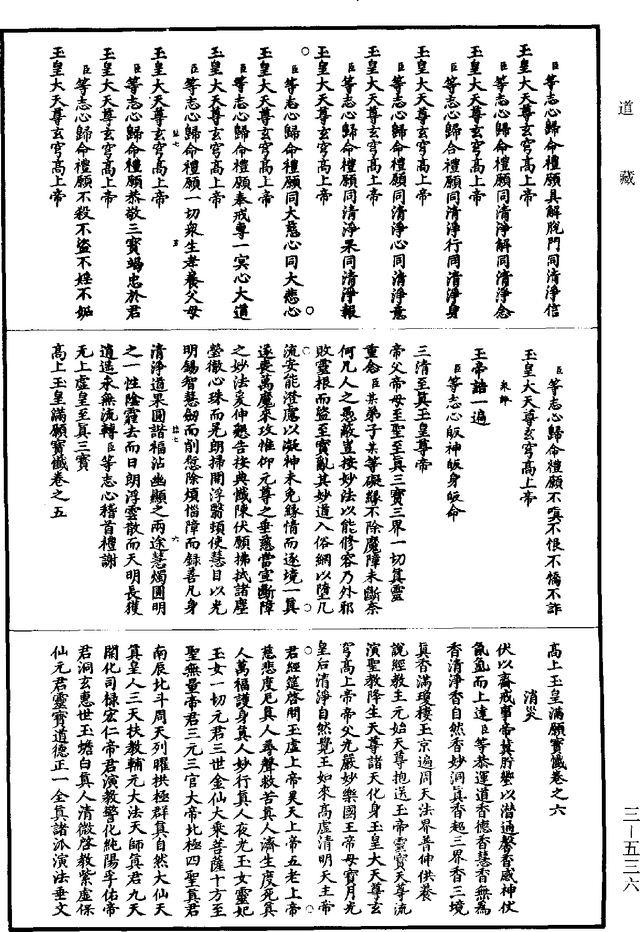 道藏
臣等志心歸命禮願具解脫門同清淨信
玉皇大天尊玄穹高上帝
臣等志心歸命禮願同清淨解同清淨念
玉皇大天尊玄穹高上帝
臣等志心歸合禮願同清淨行同清淨身
玉皇大天尊玄穹高上帝
臣等志心歸命禮願同清淨心同清淨意
玉皇大天尊玄穹高上帝
臣等志心歸命禮願同清淨果同清淨報
玉皇大天尊玄穹高上帝
臣等志心歸命禮願同大慈心同大悲心
玉皇大天尊玄穹高上帝
臣等志心歸命禮願奉戒專一冥心大道
玉皇大天尊玄穹高上帝
臣等志心歸命禮願一切眾生孝養父母
玉皇大天尊玄穹高上帝
臣等志心歸命禮願恭敬三寶竭忠於君
玉皇大天尊玄穹高上帝
臣等志心歸命禮願不殺不盜不婬不妬
玉皇大天尊玄穹高上帝
臣等志心歸命禮願不嗔不恨不憍不詐
玉皇大天尊玄穹高上帝
玉帝誥一遍
臣等志心皈神皈身皈命
三清至真玉皇尊帝
帝父帝母至聖至真三寶三界一切真靈
重念臣某弟子某等礙緣不除魔障未斷奈
何凡人之愚蔽豈按妙法以能修容乃外邪
敗靈根而盜至寶亂其妙道入俗網以墮凡
流安能澄慮以凝神未免緣情而逐境一真
遂喪萬魔來攻惟仰元尊之垂慈當宣斷障
之妙法爰伸懇告按典懺陳伏願拂拭諸塵
瑩徹心珠而晃朗掃開浮翳頓使慧目以光
明錫智慧劒而削愆除煩惱障而錄善凡身
清淨道果圓諧福沾幽顯之兩途慧燭圓明
之一性陰霾去而日朗浮雲散而天明長獲
逍遙永無流轉臣等志心稽首禮謝
無上虛皇至真三寶
高上玉皇滿願寶懺卷之五
高上玉皇滿願寶懺卷之六
消災
伏以齋戒事帝其肸蠁以潛通馨香感神仗
氤氳而上達臣等恭運道香德香慧香無為
香清淨香自然香妙洞真香超三界香三境
真香滿瓊樓玉京遍周天法界普伸供養
說經教主元始天尊抱送玉帝靈寶天尊流
演聖教降生天尊諸天化身玉皇大天尊玄
穹高上帝帝父光嚴妙樂國王帝母寶月光
皇后清淨自然覺王如來高虛清明天主帝
君經筵啓問玉虛上帝昊天上帝五老上帝
慈悲度厄真人尋聲救苦真人濟生度死真
人萬福護身真人妙行真人夜光玉女靈妃
玉女一切元君三世金仙大乘菩薩十方至
聖無量帝君三元三官大帝北極四聖真君
南辰北斗周天列曜拱極群真自然大仙天
真皇人三天扶教輔元大法天師真君九天
開化司祿宏仁帝君演教警化純陽孚佑帝
君洞玄惠世玉蟾白真人清微啓教紫虛保
仙元君靈寶道德正一全真諸派演法垂文
三一五三六